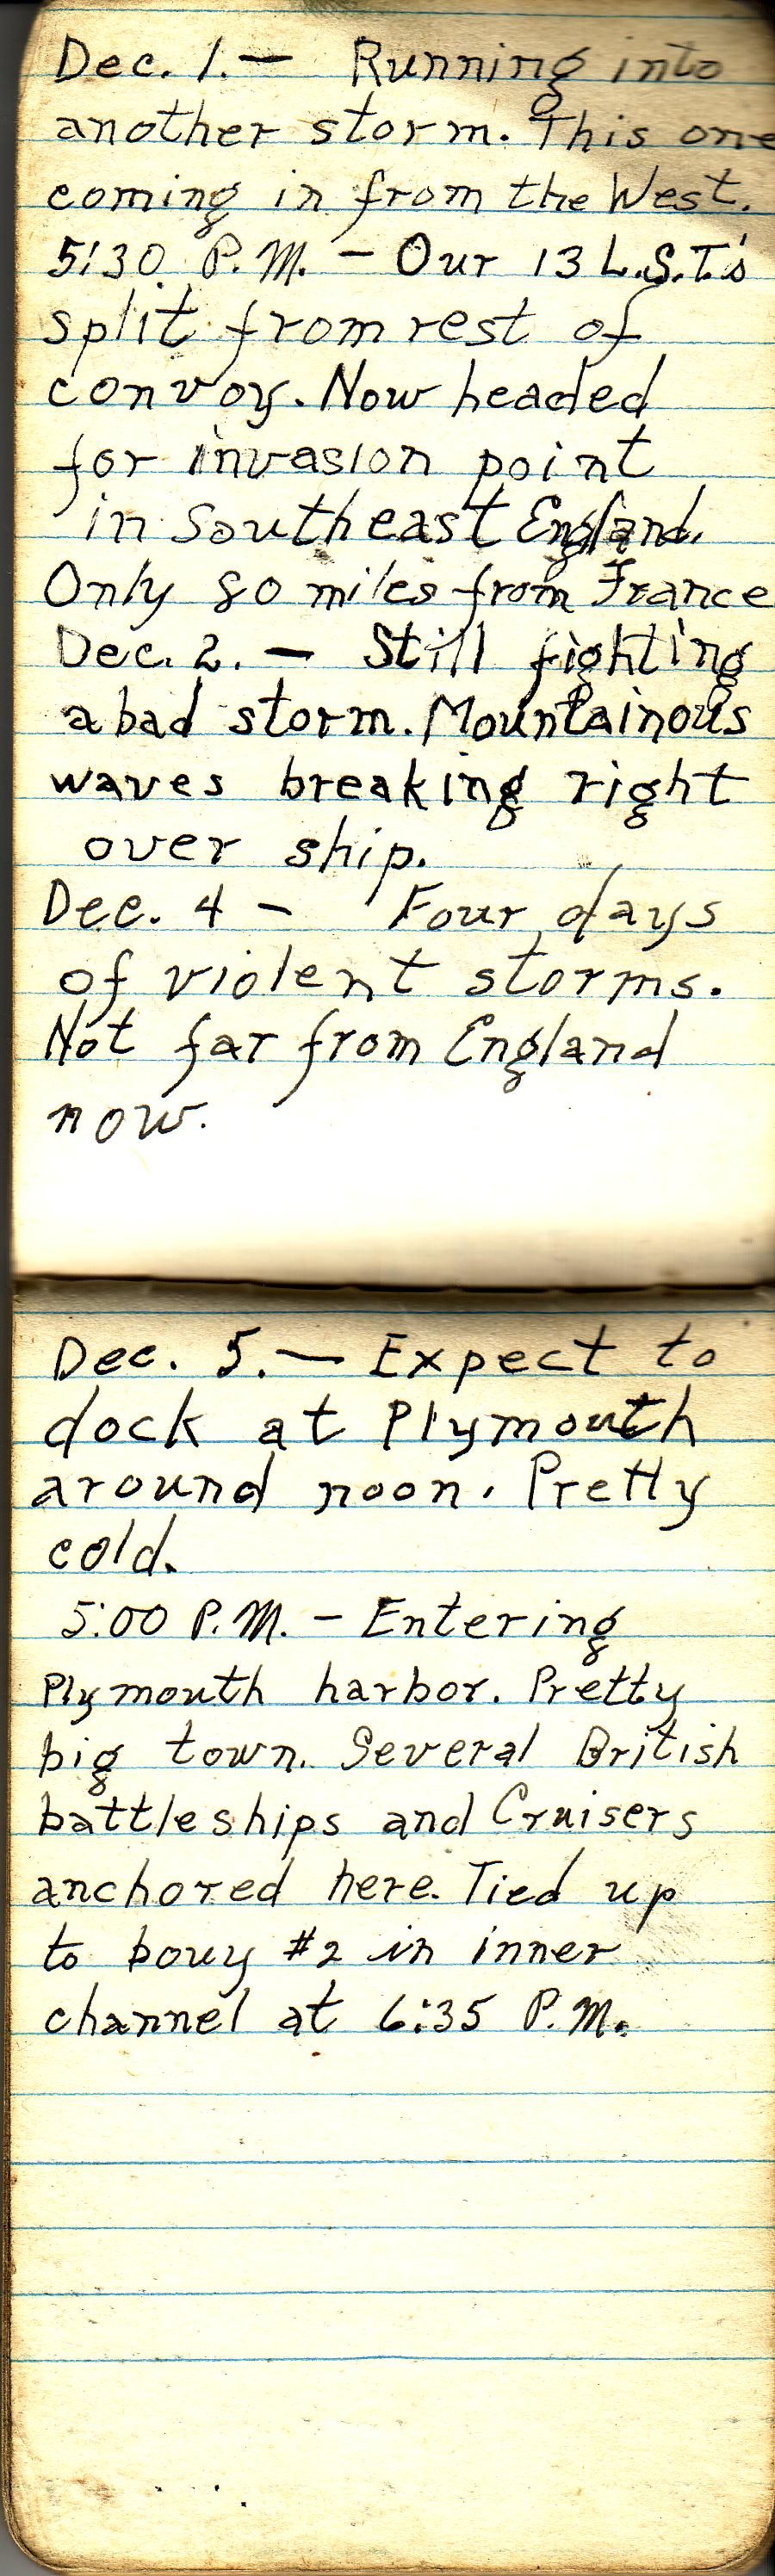 Dec. 1.— Running into
another storm. This one
coming in from the West.
5:30 P.M. – Our 13 L.S.T.'s
split from rest of
convoy. Now headed
for invasion point
in Southeast England.
Only 80 miles from France
Dec. 2. — Still fighting
a bad storm. Mountainous
waves breaking right
over ship.
Dec. 4 – Four days
of violent storms.
Not far from England
now.
Dec. 5.— Expect to
dock at Plymouth
around noon. Pretty
cold.
5:00 P.M. – Entering
Plymouth harbor. Pretty
big town. Several British
battleships and Cruisers
anchored here. Tied up
to bouy #2 in inner
channel at 6:35 P.M.